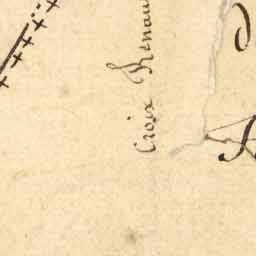 Croix Renau